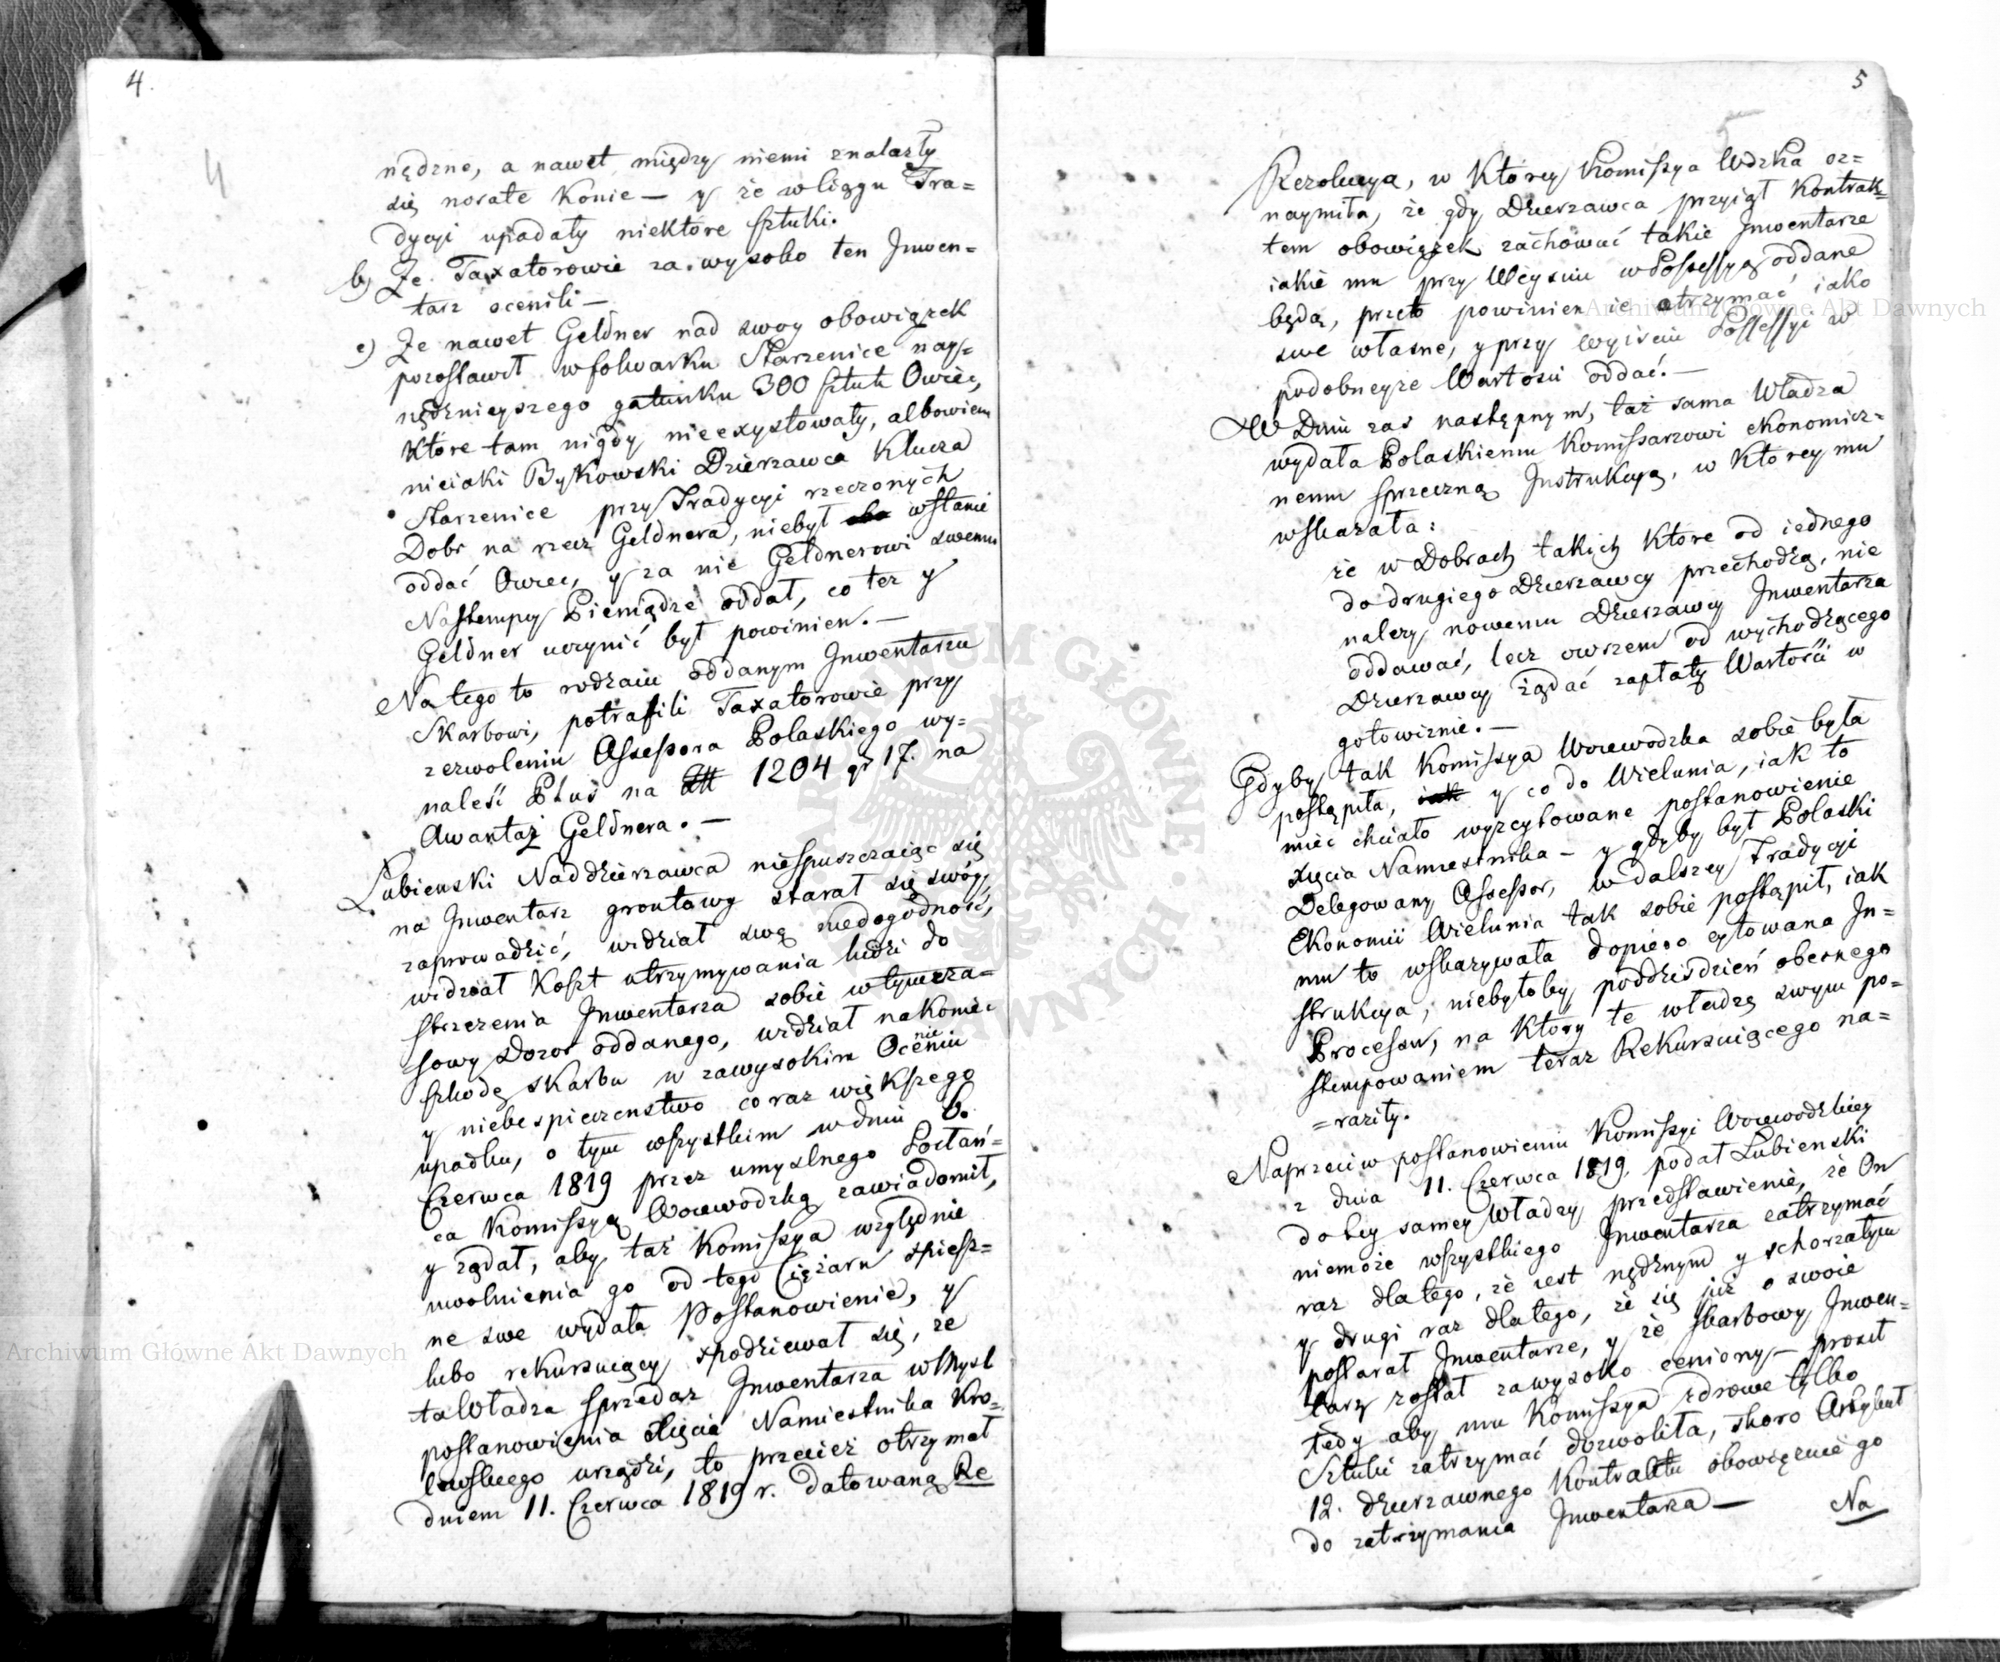 4.
4
nędzne, a nawet między niemi znalazły
się nosate Konie — y że w ciągu Tra=
dycyi upadały niektóre sztuki.
b) Że Taxatorowie za wysoko ten Inwen=
tarz ocenili —
c) Że nawet Geldner nad swoy obowiązek
pozostawił w folwarku Starzenice nay=
nędznieyszego gatunku 300 sztuk Owiec,
które tam nigdy nieexystowały, albowiem
nieiaki Bykowski Dzierzawca Klucza
Starzenice przy Tradycyi rzeczonych
Dobr na rzecz Geldnera, niebył w stanie
oddać Owiec, y za nie Geldnerowi swemu
Nastempcy Pieniądze oddał, co też y
Geldner uczynić był powinien. —
Na tego to rodzaiu oddanym Inwentarzu
Skarbowi, potrafili Taxatorowie przy
zezwoleniu Assessora Polaskiego wy=
naleść Plus na 1204 gr 17. na
Awantaż Geldnera. —
Lubienski Naddzierzawca niespuszczaiąc się
na Inwentarz gruntowy starał się swóy
zaprowadzić, widział swą niedogodność,
widział Koszt utrzymywania ludzi do
strzeżenia Inwentarza sobie w tymcza=
sowy Dozor oddanego, widział nakoniec
szkodę Skarbu w zawysokim Ocenieniu
y niebespieczenstwo coraz większego
upadku, o tym wszystkim w dniu 6.
Czerwca 1819 przez umyslnego Posłań=
ca Komissyą Woiewodzką zawiadomił,
y żądał, aby taż Komissya względnie
uwolnienia go od tego Ciężaru spiesz=
ne swe wydała Postanowienie, y
lubo rekursuiący spodziewał się, że
ta Władza sprzedaż Inwentarza w Mysl
postanowienia Xięcia Namiestnika Kro=
lewskiego urządzi, to przecież otrzymał
dniem 11. Czerwca 1819 r. datowaną Re
5
5
Rezolucya, w którey Komissya Wdzka oz=
naymiła, że gdy Dzierzawca przyiął Kontrak=
tem obowiązek zachować takie Inwentarze
iakie mu przy Weysciu w Possessyą oddane
będą, przeto powinien ie otrzymać iako
swe własne, y przy Wyiściu Possessyi w
podobneyże Wartosci oddać. —
W Dniu zaś następnym, taż sama Władza
wydała Polaskiemu Komissarzowi ekonomicz=
nemu sprzeczną Instrukcyą, w którey mu
wskazała:
że w Dobrach takich które od iednego
do drugiego Dzierzawcy przechodzą, nie
należy nowemu Dzierzawcy Inwentarza
oddawać, lecz owszem od wychodzącego
Dzierzawcy żądać zapłaty Wartości w
gotowiznie. —
Gdyby tak Komissya Woiewodzka sobie była
postąpiła, y co do Wielunia, iak to
mieć chciało wyzcytowane postanowienie
Xięcia Namiestnika — y gdyby był Polaski
Delegowany Assessor, w dalszey Tradycyi
Ekonomii Wielunia tak sobie postąpił, iak
mu to wskazywała dopiero cytowana In=
strukcya, niebyłoby poddziśdzień obecnego
Processu, na który te władzę swym po=
stempowaniem teraz Rekursuiącego na=
=raziły.
Naprzeciw postanowieniu Komissyi Woiewodzkiey
z dnia 11. Czerwca 1819. podał Lubieński
do tey samey Władzy przedstawienie, że On
niemoże wszystkiego Inwentarza zatrzymać
raz dlatego, że iest nędznym y schorzałym
y drugi raz dlatego, że się już o swoie
postarał Inwentarze, y że skarbowy Inwen=
tarz został zawysoko ceniony — prosił
tedy aby mu Komissya zdrowe tylko
Sztuki zatrzymać dozwoliła, skoro Artykuł
12. dzierzawnego Kontraktu obowięzuie go
do zatrzymania Inwentarza —
Na
Archiwum Główne Akt Dawnych
Archiwum Główne Akt Dawnych
ARCHIWUM GŁÓWNE AKT DAWNYCH